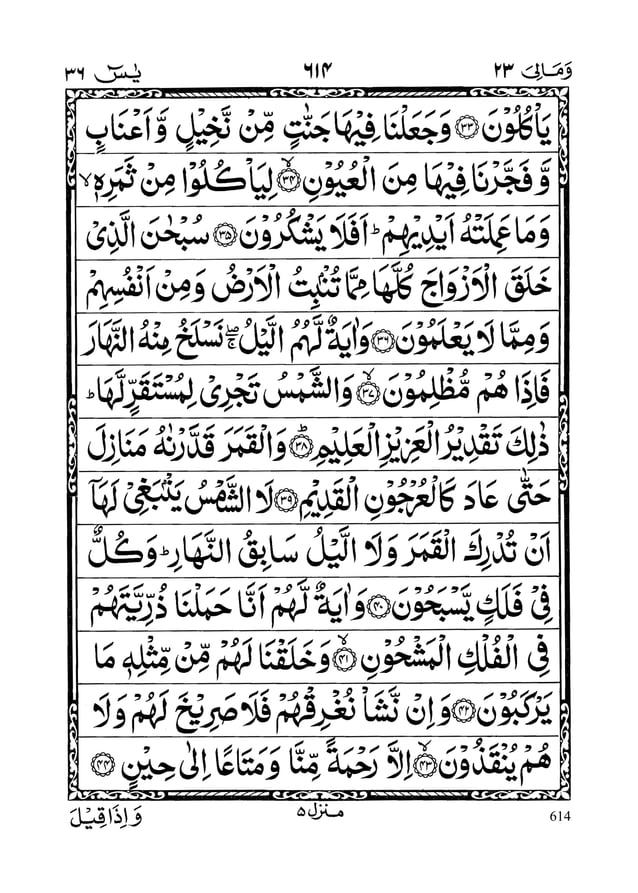 وَمَالِیَ ٢٣ ٦١٤ یٰسٓ ٣٦
یَاْكُلُوْنَ ﴿٣٣﴾ وَجَعَلْنَا فِیْهَا جَنّٰتٍ مِّنْ نَّخِیْلٍ وَّ اَعْنَابٍ
وَّ فَجَّرْنَا فِیْهَا مِنَ الْعُیُوْنِ ﴿٣٤﴾ۙ لِیَاْكُلُوْا مِنْ ثَمَرِهٖ ۙ
وَمَا عَمِلَتْهُ اَیْدِیْهِمْ ؕ اَفَلَا یَشْكُرُوْنَ ﴿٣٥﴾ سُبْحٰنَ الَّذِیْ
خَلَقَ الْاَزْوَاجَ كُلَّهَا مِمَّا تُنْۢبِتُ الْاَرْضُ وَمِنْ اَنْفُسِهِمْ
وَمِمَّا لَا یَعْلَمُوْنَ ﴿٣٦﴾ وَاٰیَةٌ لَّهُمُ الَّیْلُ ۖۚ نَسْلَخُ مِنْهُ النَّهَارَ
فَاِذَا هُمْ مُّظْلِمُوْنَ ﴿٣٧﴾ۙ وَالشَّمْسُ تَجْرِیْ لِمُسْتَقَرٍّ لَّهَا ؕ
ذٰلِكَ تَقْدِیْرُ الْعَزِیْزِ الْعَلِیْمِ ﴿٣٨﴾ؕ وَالْقَمَرَ قَدَّرْنٰهُ مَنَازِلَ
حَتّٰی عَادَ كَالْعُرْجُوْنِ الْقَدِیْمِ ﴿٣٩﴾ لَا الشَّمْسُ یَنْۢبَغِیْ لَهَاۤ
اَنْ تُدْرِكَ الْقَمَرَ وَلَا الَّیْلُ سَابِقُ النَّهَارِ ؕ وَكُلٌّ
فِیْ فَلَكٍ یَّسْبَحُوْنَ ﴿٤٠﴾ وَاٰیَةٌ لَّهُمْ اَنَّا حَمَلْنَا ذُرِّیَّتَهُمْ
فِی الْفُلْكِ الْمَشْحُوْنِ ﴿٤١﴾ۙ وَخَلَقْنَا لَهُمْ مِّنْ مِّثْلِهٖ مَا
یَرْكَبُوْنَ ﴿٤٢﴾ وَاِنْ نَّشَاْ نُغْرِقْهُمْ فَلَا صَرِیْخَ لَهُمْ وَلَا
هُمْ یُنْقَذُوْنَ ﴿٤٣﴾ۙ اِلَّا رَحْمَةً مِّنَّا وَمَتَاعًا اِلٰی حِیْنٍ ﴿٤٤﴾
614 منزل ٥ وَاِذَا قِیْلَ